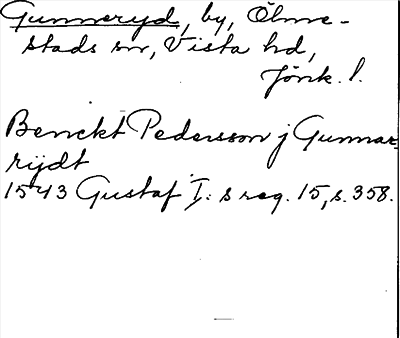 Gunneryd, by, Ölme-
stads sn, Vista hd,
Jönk. l.
Benckt Pedersson j Gunnar-
rydt
1543 Gustaf I: s reg. 15, s. 358.